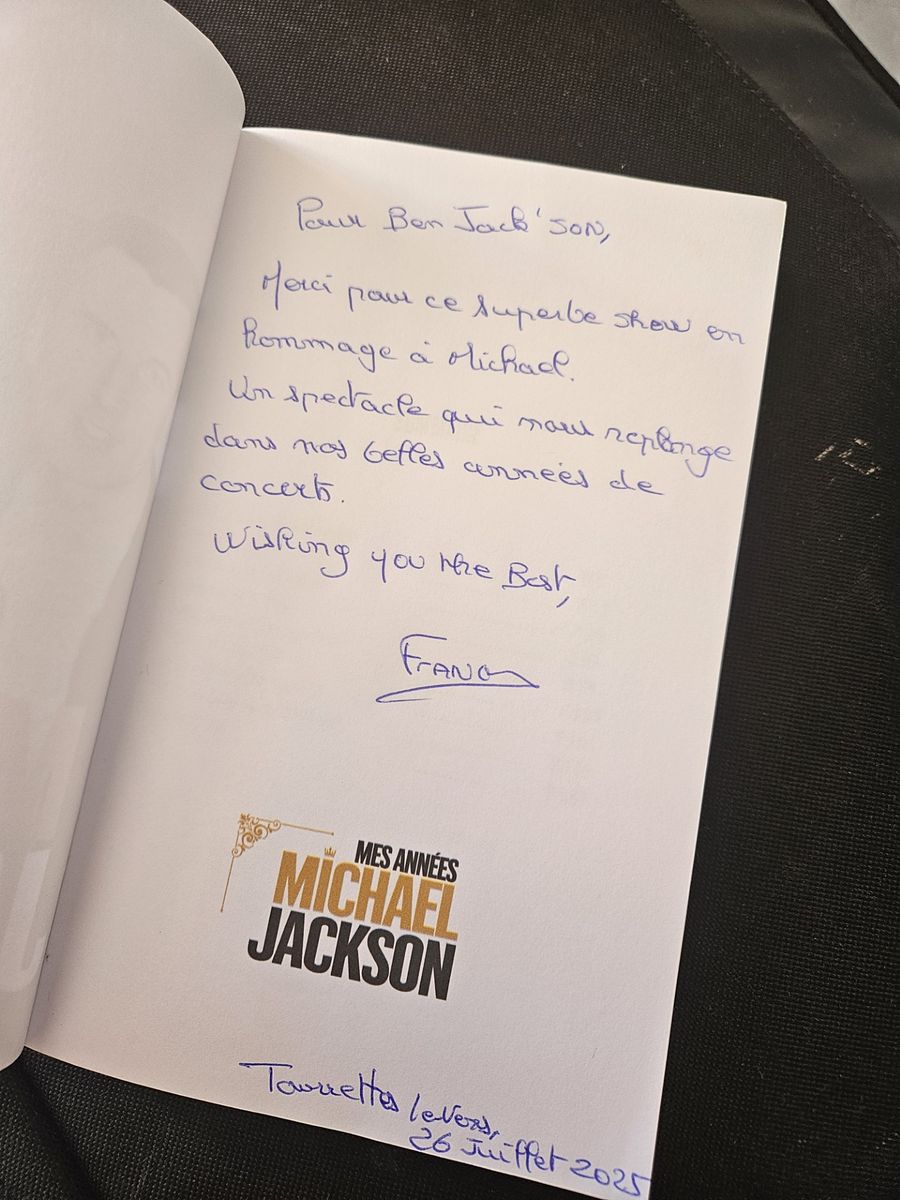 Pour Ben Jack'son,
Merci pour ce superbe show en
hommage à Michael.
Un spectacle qui nous replonge
dans nos belles années de
concerts.
Wishing you the Best,
Franck
MES ANNÉES
MICHAEL
JACKSON
Tourrettes Levens,
26 Juillet 2025